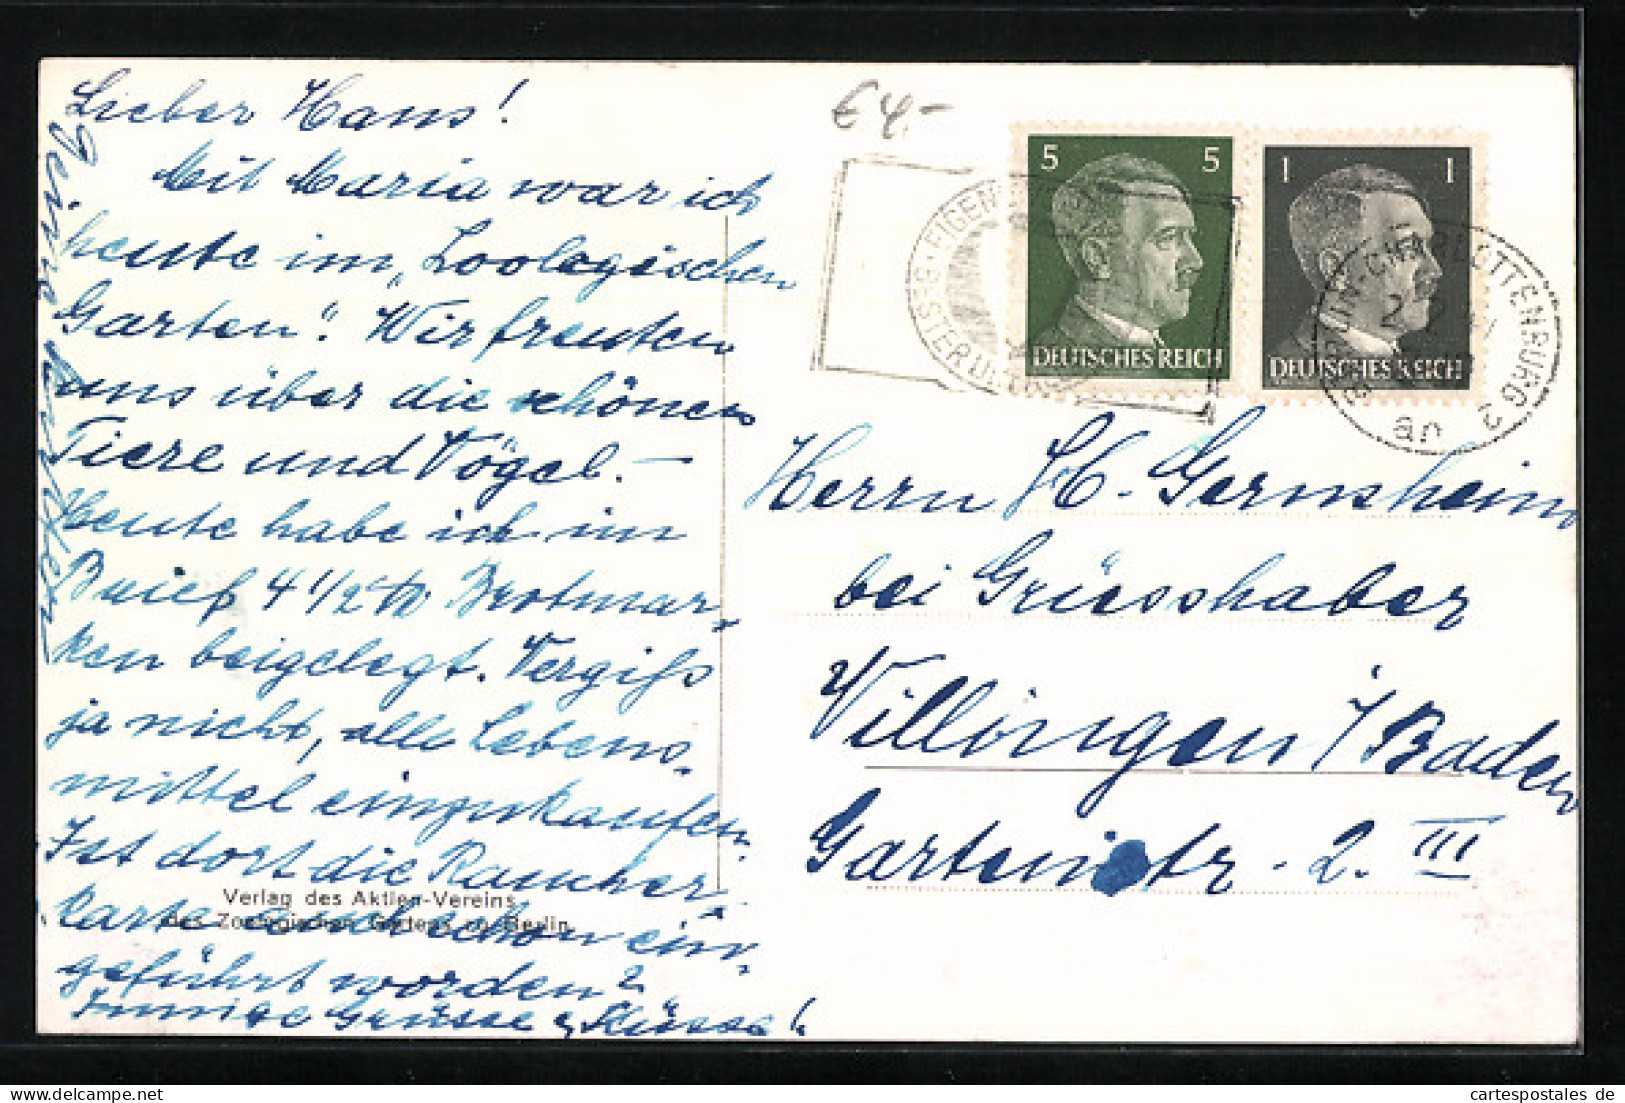 Lieber Hans!
Mit Maria war ich
heute im „Zoologischen
Garten". Wir freuten
uns über die schönen
Tiere und Vögel. –
Heute habe ich im
Brief 4 1/2 Brotmar-
ken beigelegt. Vergiß
ja nicht, alle Lebens-
mittel einzukaufen.
Ist dort die Raucher-
karte auch schon ein-
geführt worden?
Innige Grüsse u. Küsse!
Verlag des Aktien-Vereins
des Zoologischen Gartens zu Berlin
€ 4.-
5 5
DEUTSCHES REICH
1 1
DEUTSCHES REICH
BERLIN-CHARLOTTENBURG 2
an
Herrn H. Gernsheim
bei Griesshaber
Villingen / Baden
Gartenstr. 2. III
cartespostales de